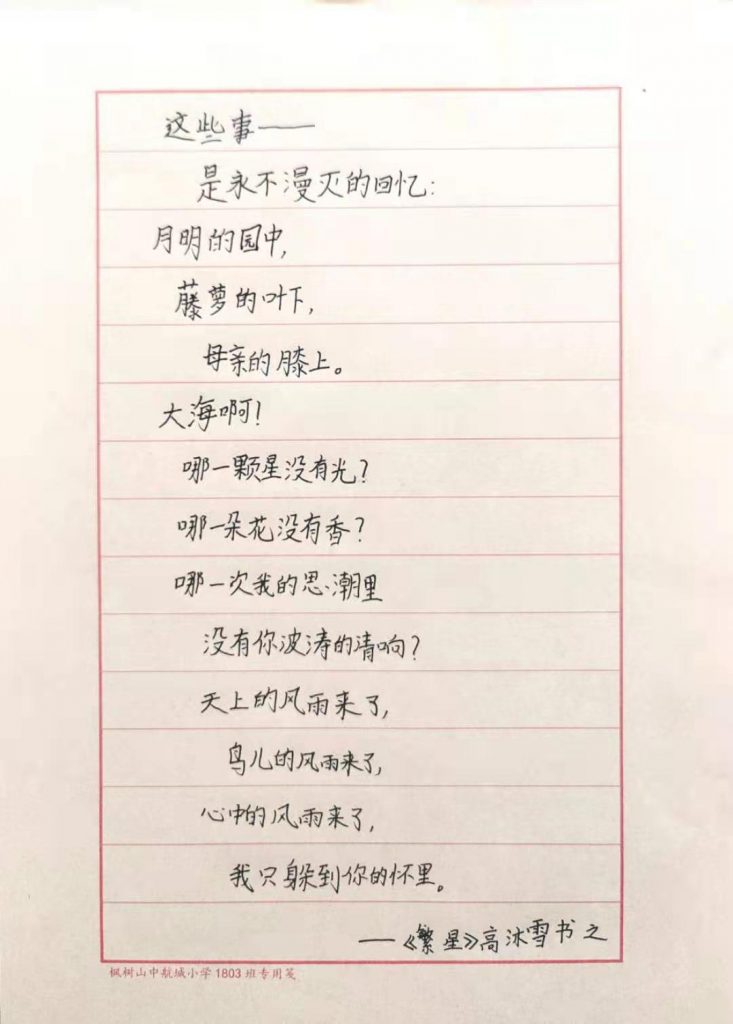 这些事——
是永不漫灭的回忆：
月明的园中，
藤萝的叶下，
母亲的膝上。
大海啊！
哪一颗星没有光？
哪一朵花没有香？
哪一次我的思潮里
没有你波涛的清响？
天上的风雨来了，
鸟儿的风雨来了，
心中的风雨来了，
我只躲到你的怀里。
——《繁星》高沐雪书之
枫树山中航城小学1803班专用笺